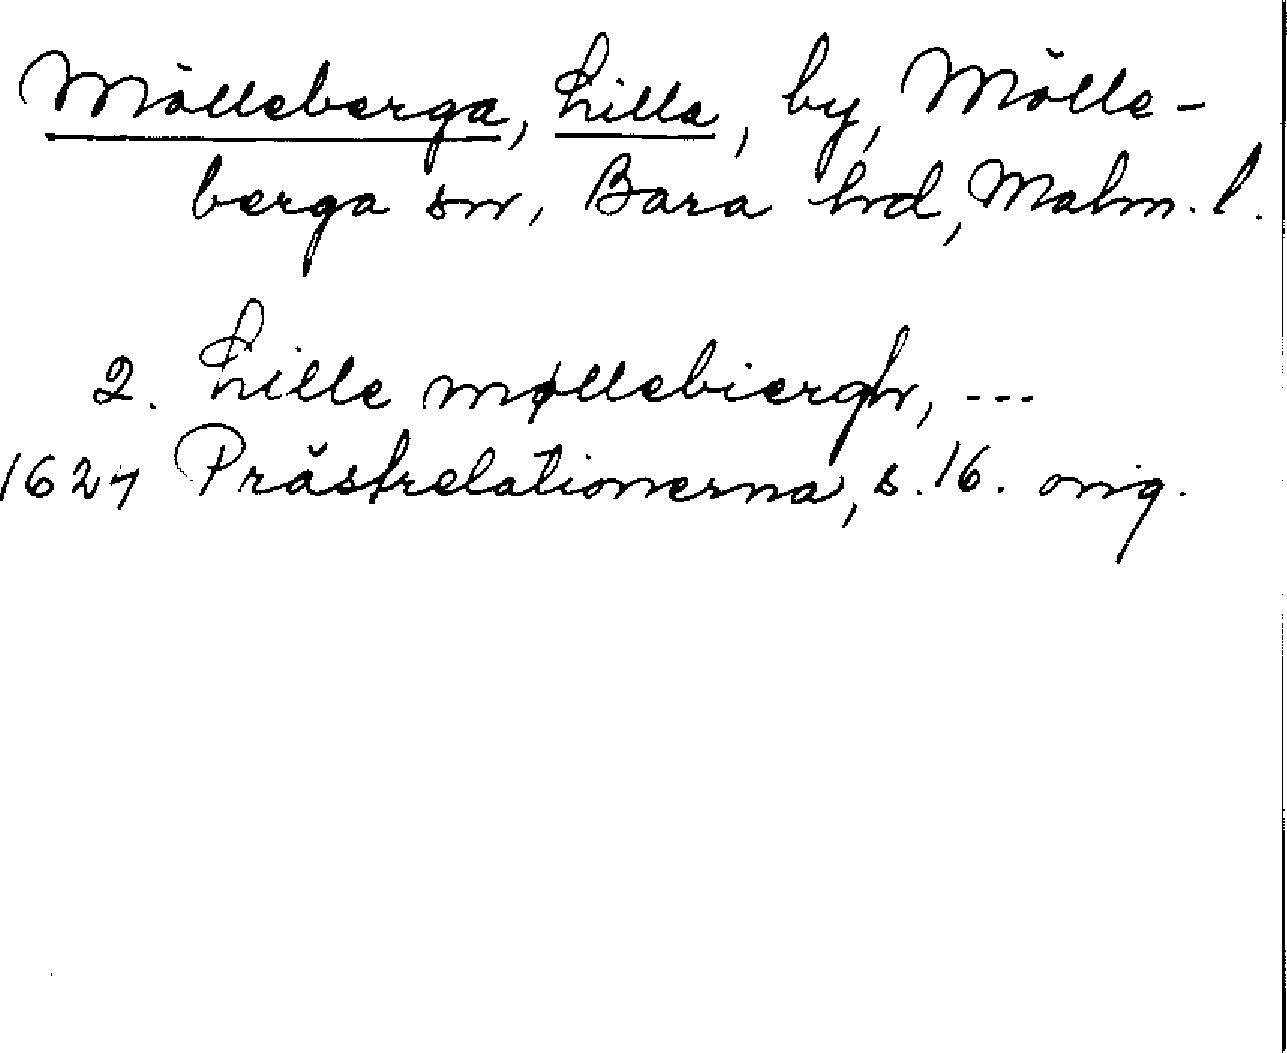 Mölleberga, Lilla, by, Mölle-
berga sn, Bara hd, Malm. l.
2. Lille møllebiergh, ---
1624 Prästrelationerna, s. 16. orig.